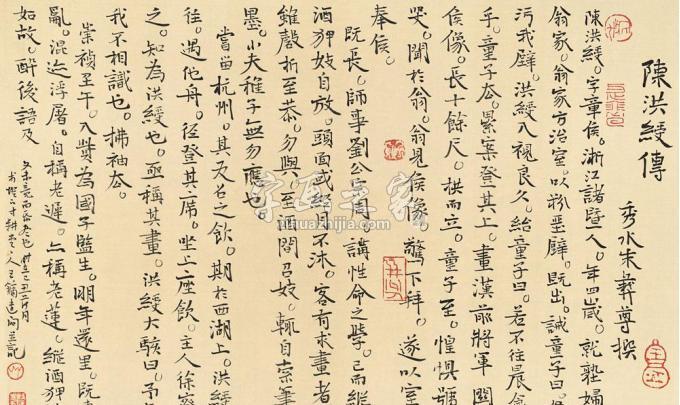 陳洪綬傳
秀水朱彝尊撰
陳洪綬。字章侯。浙江諸暨人。年四歲。就塾婦
翁家。翁家方治室。以粉堊壁。既出。誡童子曰。
污我壁。洪綬入視良久。紿童子曰。若不往晨食
乎。童子去。累案登其上。畫漢前將軍關
侯像。長十餘尺。拱而立。童子至。惶懼號
哭。聞於翁。翁見侯像。驚下拜。遂以室
奉侯。
既長。師事劉公宗周。講性命之學。已而縱
酒狎妓自放。頭面或經月不沐。客有求畫者
雖罄折至恭。勿與。至酒間召妓。輒自索筆
墨。小夫稚子無勿應也。
嘗留杭州。其友召之飲。期於西湖上。洪綬
往。遇他舟。徑登其席。坐上座飲。主人徐察
之。知為洪綬也。亟稱其畫。洪綬大駭曰。予
我不相識也。拂袖去。
崇禎壬午。入貲為國子監生。明年還里。既
亂。混迹浮屠。自稱老遲。亦稱老蓮。縱酒狎
如故。醉後語及